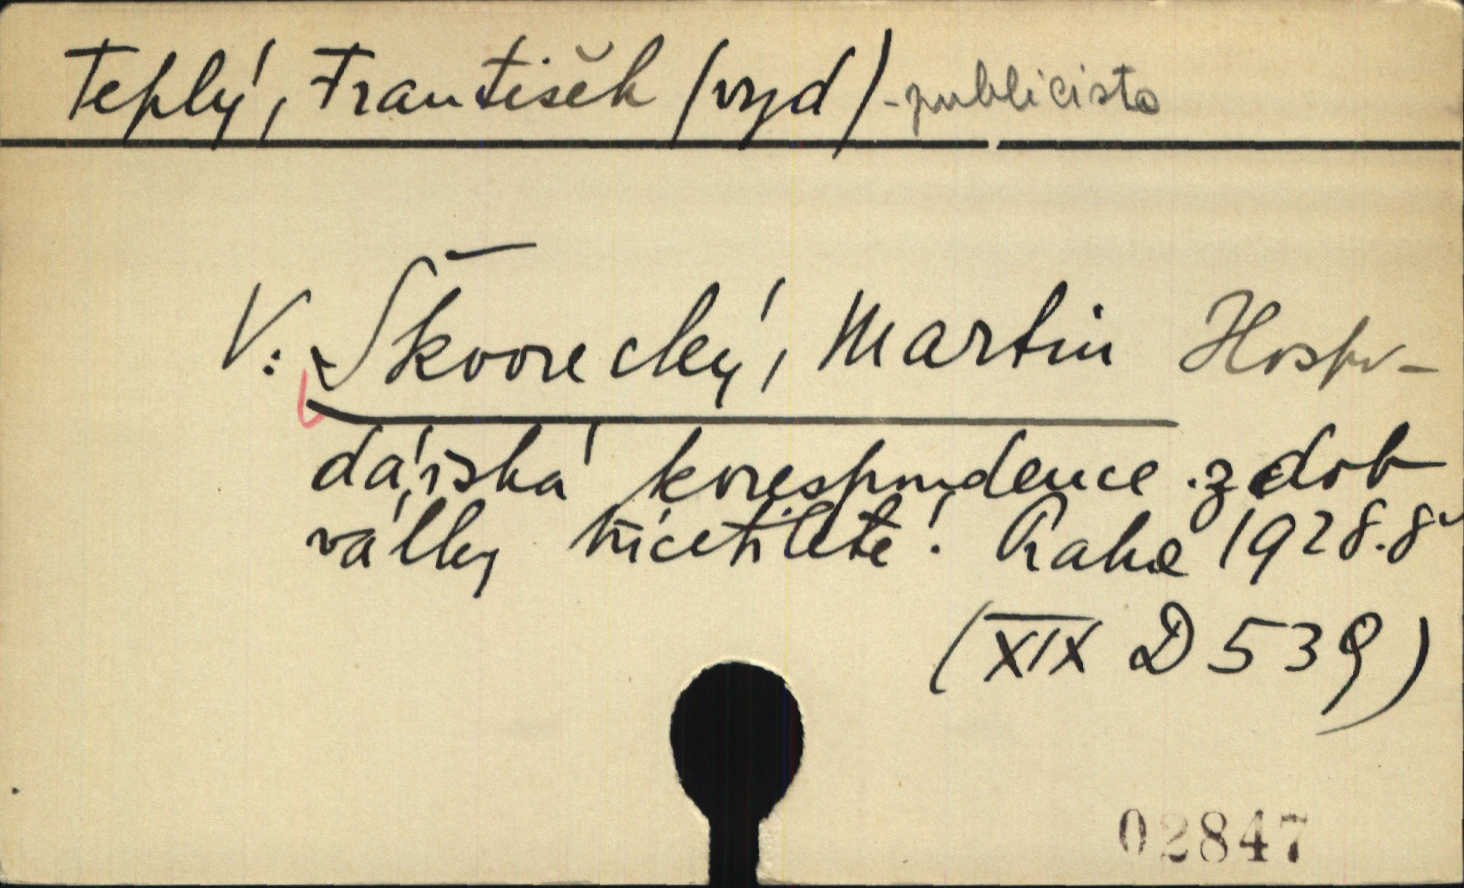 Teplý, František (vyd) - publicista
V: Škvorecký, Martin Hospo-
dářská korespondence z dob
války třicetileté. Praha 1928. 8°
(XIX D 539)
02847